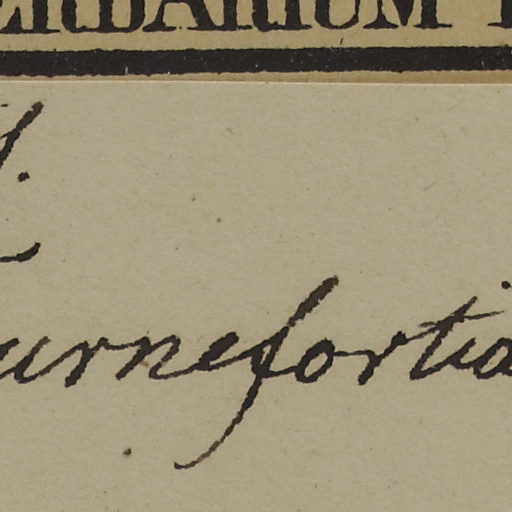 ERBARIUM
urnefortia